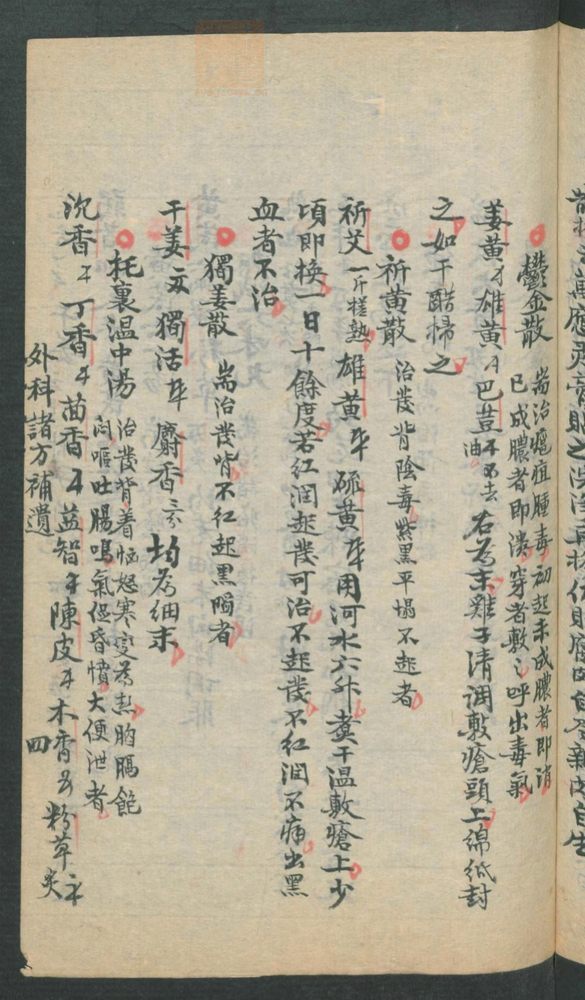 鬱金散 耑治瘡疽腫毒初起未成膿者即消
已成膿者即潰穿者敷之呼出毒氣
姜黃 雄黃 巴荳 去油 右為末雞子清調敷瘡頭上綿紙封
之如干醋掃之
祈黃散 治發背陰毒紫黑平塌不起者
祈艾一斤槎熟 雄黃 硫黃 用河水六升煑干溫敷瘡上少
頃即換一日十餘度若紅潤起發可治不起發不紅潤不痛出黑
血者不治
獨姜散 耑治發背不紅起黑陷者
干姜 獨活 麝香三分 均為細末
托裏溫中湯 治發背着惱怒寒變為熱胸膈飽
悶嘔吐腸鳴氣促昏憒大便泄者
沉香 丁香 茴香 益智 陳皮 木香 粉草 炙
外科諸方補遺 四